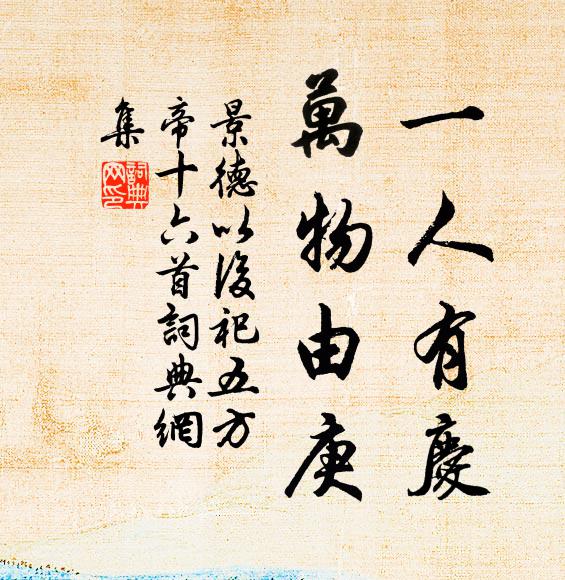 一人有慶
萬物由庚
景德以後祀五方
帝十六首詞典網
集
詞典
网印